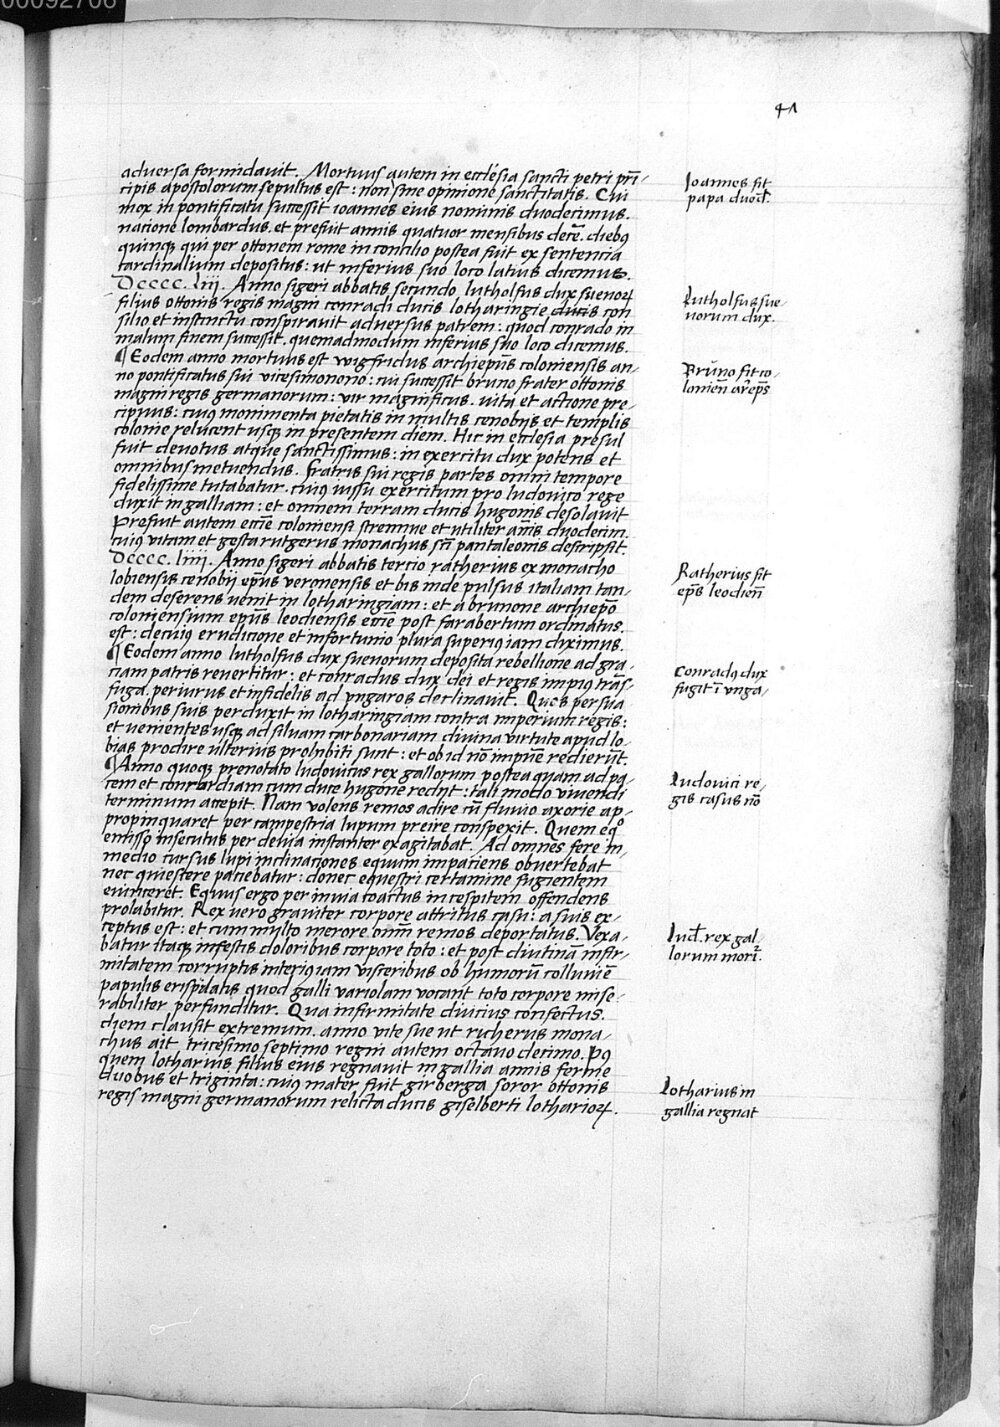 00092706
41
adversa formidauit. Mortuus autem in ecclesia sancti petri prī-
cipis apostolorum sepultus est: non sine opinione sanctitatis. Cui
mox in pontificatu successit ioannes eius nominis duodecimus.
natione lombardus. et prefuit annis quatuor mensibus decē. diebꝯ
quinqꝫ qui per ottonem rome in concilio postea fuit ex sententia
cardinalium depositus: ut inferius suo loco latius dicemus.
Dcccc. liii. Anno sigeri abbatis secundo lutholfus dux sueuoꝝ
filius ottonis regis magni conradi ducis lotharingie ducis con
silio et instinctu conspirauit adversus patrem: quod conrado in
malum finem successit. quemadmodum inferius suo loco dicemus.
¶ Eodem anno mortuus est wigfridus archiep̄us coloniensis an-
no pontificatus sui vicesimonono: cui successit bruno frater ottonis
magni regis germanorum: vir magnificus. uita et actione pre-
cipuus: cuiꝯ monimenta pietatis in multis cenobijs et templis
colonie relucent usqꝫ in presentem diem. Hic in ecclesia presul
fuit deuotus atque sanctissimus: in exercitu dux potens et
omnibus metuendus. fratris sui regis partes omni tempore
fidelissime tutabatur. cuiꝯ iussu exercitum pro ludouico rege
duxit in galliam: et omnem terram ducis hugonis desolauit
Prefuit autem eccīe coloniensi strennue et utiliter annīs duodecim.
cuiꝯ vitam et gesta rutgerus monachus scī pantaleonis descripsit.
Dcccc. liiii. Anno sigeri abbatis tercio ratherius ex monacho
lobiensis cenobij ep̄us veronensis et bis inde pulsus italiam tan-
dem deserens uenit in lotharingiam: et a brunone archiep̄o
coloniensium ep̄us leodiensis eccīe post farabertum ordinatus.
est: de cuiꝯ eruditione et infortunio plura superiꝯ iam diximus.
¶ Eodem anno lutholfus dux sueuorum deposita rebellione ad gra-
ciam patris reuertitur: et conradus dux dei et regis impiꝯ trās-
fuga. periurus et infidelis ad vngaros declinauit. Quos persua
sionibus suis perduxit in lotharingiam contra imperium regis:
et uenientes usqꝫ ad siluam carbonariam diuina virtute apud lo-
bias prodire ulterius prohibiti sunt: et ob id nō impune redierūt.
¶ Anno quoqꝫ prenotato ludouicus rex gallorum postea quam ad pa-
cem et concordiam cum duce hugone redijt: tali modo viuendi
terminum accepit. Nam volens remos adire cū fluuio axorie ap-
propinquaret per campestria lupum preire conspexit. Quem eqͦ
emisso insecutus per deuia instanter exagitabat. Ad omnes fere in-
medio cursus lupi inclinaciones equum impaciens obuertebat
nec quiescere paciebatur: donec equestri certamine fugientem
euinceret. Equus ergo per inuia coactus in cespitem offendens
prolabitur. Rex vero grauiter corpore attritus casu: a suis ex-
ceptus est: et cum multo merore omīm remos deportatus. Vexa-
batur itaqꝫ infestis doloribus corpore toto: et post diutinā infir-
mitatem corruptis interiꝯ iam visceribus ob humorū colluuiē
papulis erispilatis quod galli variolam vocant toto corpore mise-
rabiliter perfunditur. Qua infirmitate diucius confectus.
diem clausit extremum. anno vite sue ut richerus mona-
chus ait tricesimo septimo regni autem octauo decimo. Pꝯ
quem lotharius filius eius regnauit in gallia annis ferme
duobus et triginta: cuiꝯ mater fuit girberga soror ottonis
regis magni germanorum relicta ducis giselberti lotharioꝝ.
Ioannes fit
papa duod.
Lutholfus sue-
uorum dux.
Brūno fit co-
lonien̄ arep̄s
Ratherius fit
ep̄s leodien̄
Conradꝯ dux
fugit ī vnga-
Ludouici re-
gis casus nō
Lud. rex gal-
lorum morit.
Lotharius in
gallia regnat